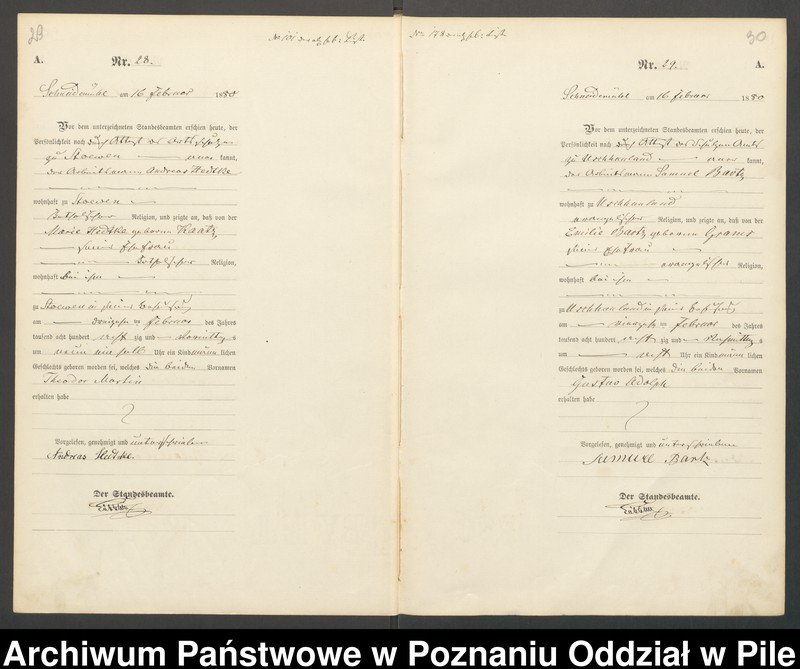 29
A.
Nr. 28.
Schneidemühl am 16 Februar 1880
Vor dem unterzeichneten Standesbeamten erschien heute, der
Persönlichkeit nach durch Attest des
zu Stoewen kannt,
der Arbeitsmann Andreas Hedtke
wohnhaft zu Stoewen
katholischer Religion, und zeigte an, daß von der
Marie Hedtke geborene Raatz
seiner Ehefrau
katholischer Religion,
wohnhaft bei ihm
zu Stoewen in seiner Behausung
am dreizehn ten Februar des Jahres
tausend acht hundert acht zig und Vormittags
um neun ein halb Uhr ein Kind männ lichen
Geschlechts geboren worden sei, welches die beiden Vornamen
Theodor Martin
erhalten habe
Vorgelesen, genehmigt und unterschrieben
Andreas Hedtke.
Der Standesbeamte.
30
Nr. 29.
A.
Schneidemühl am 16 Februar 1880
Vor dem unterzeichneten Standesbeamten erschien heute, der
Persönlichkeit nach durch Attest des Schulzen Amts
zu Uschhauland kannt,
der Arbeitsmann Samuel Bartz
wohnhaft zu Uschhauland
evangelischer Religion, und zeigte an, daß von der
Emilie Bartz geborene
seiner Ehefrau
evangelischer Religion,
wohnhaft bei ihm
zu Uschhauland in seiner Behausung
am vierzehn ten Februar des Jahres
tausend acht hundert acht zig und Nachmittags
um acht Uhr ein Kind männ lichen
Geschlechts geboren worden sei, welches die beiden Vornamen
Gustav Adolph
erhalten habe
Vorgelesen, genehmigt und unterschrieben
Samuel Bartz
Der Standesbeamte.
Archiwum Państwowe w Poznaniu Oddział w Pile